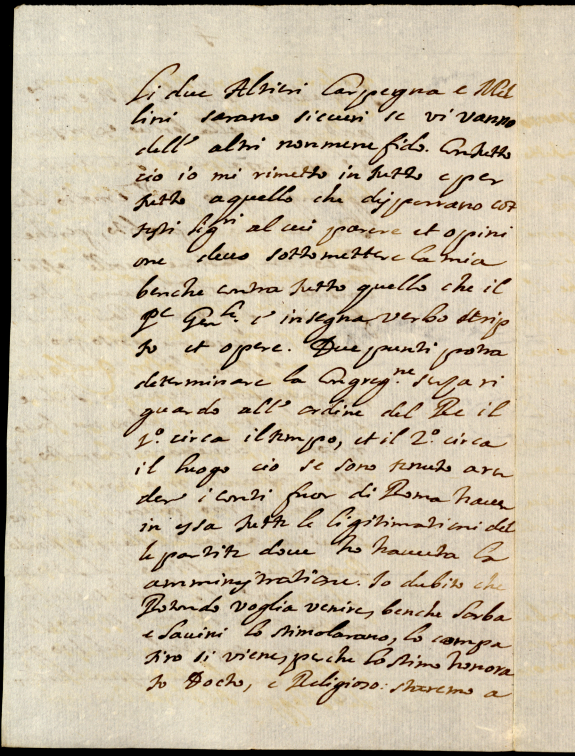 Li due Altieri Carpegna e Mel
lini sarano sicuri se vi vanno
dell' altri non mene fido. Contutto
cio io mi rimetto in tutto e per
tutto a quello che disporrano cot
testi sigri al cui parere et opini
one devo sottomettere la mia
benche contra tutto quello che il
Pe Genle c' insegna verbo scrip
to et opere. Due punti potra
determinare la Congregne senza ri
guardo all' ordine del Re il
1.º circa il tempo, et il 2.º circa
il luogo cio se sono tenuto a ren
der i conti fuor di Roma haven
in essa tutte le legitimationi del
le partite dove ho havuta la
amministratione. Io dubito che
Rotondo voglia venire, benche Sorba
e Savini lo stimolarano, lo compa
tiro si viene, perche lo stimo honora
to Docto, e Religioso: staremo a